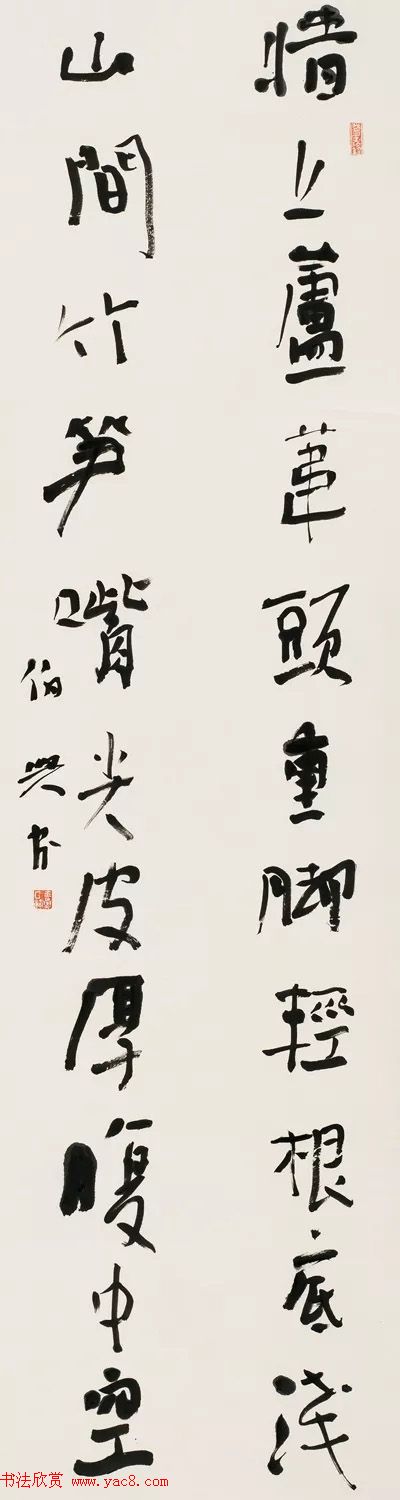 牆上蘆葦頭重脚輕根底淺
山間竹笋嘴尖皮厚腹中空
伯兴书
书法欣赏 www.yac8.com